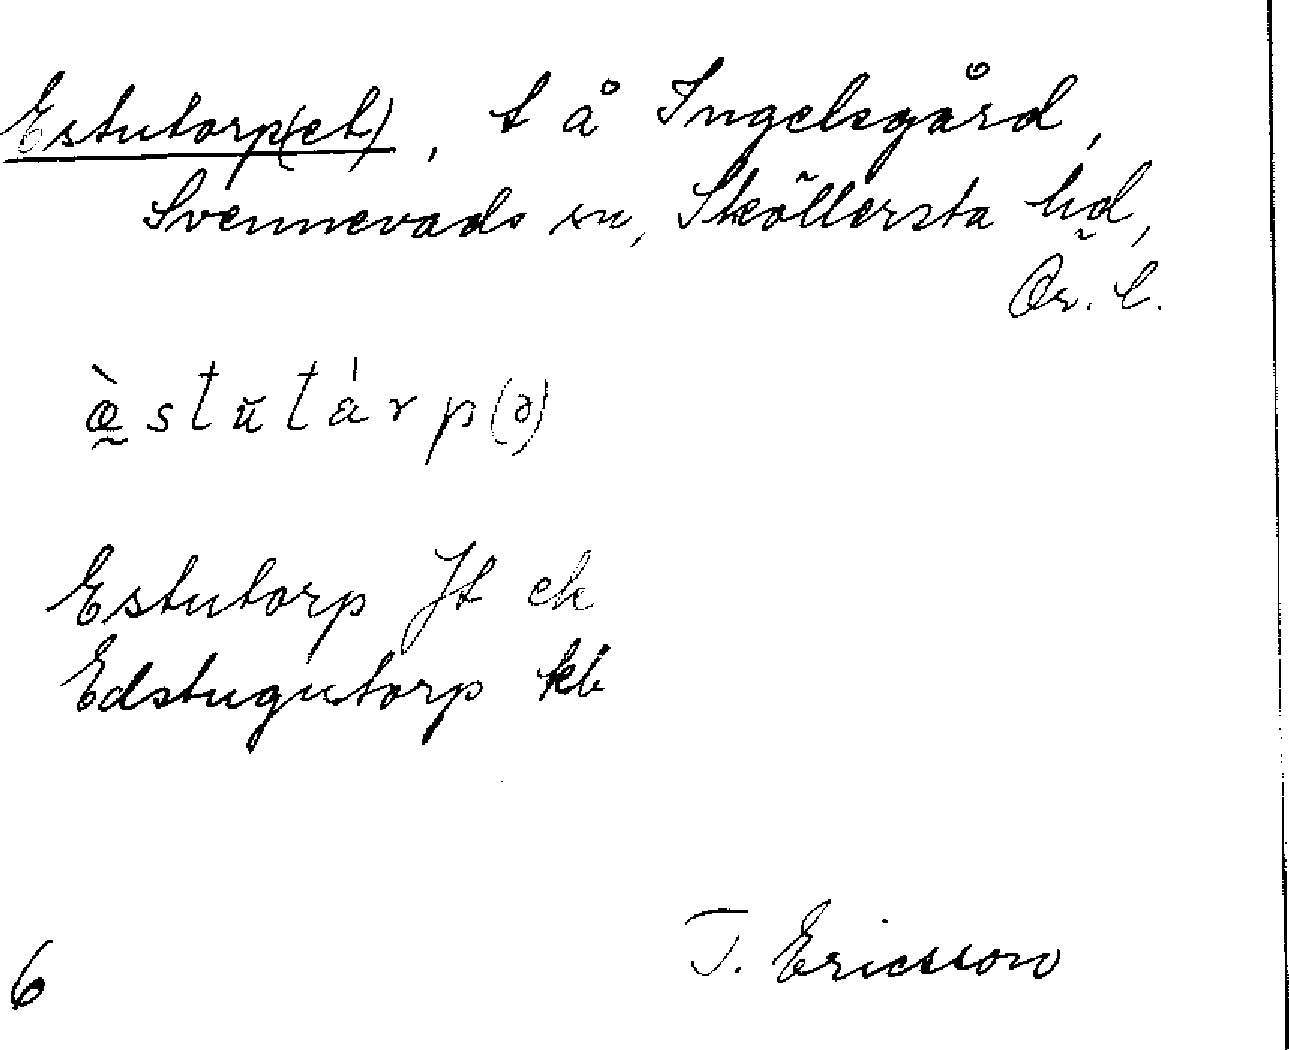 Estutorp(et), t å Ingelsgård,
Svennevads sn, Sköllersta hd,
Ör. l.
æ̀stŭtárp(ə)
Estutorp Jt ek
Edstugutorp kb
6
T. Ericsson